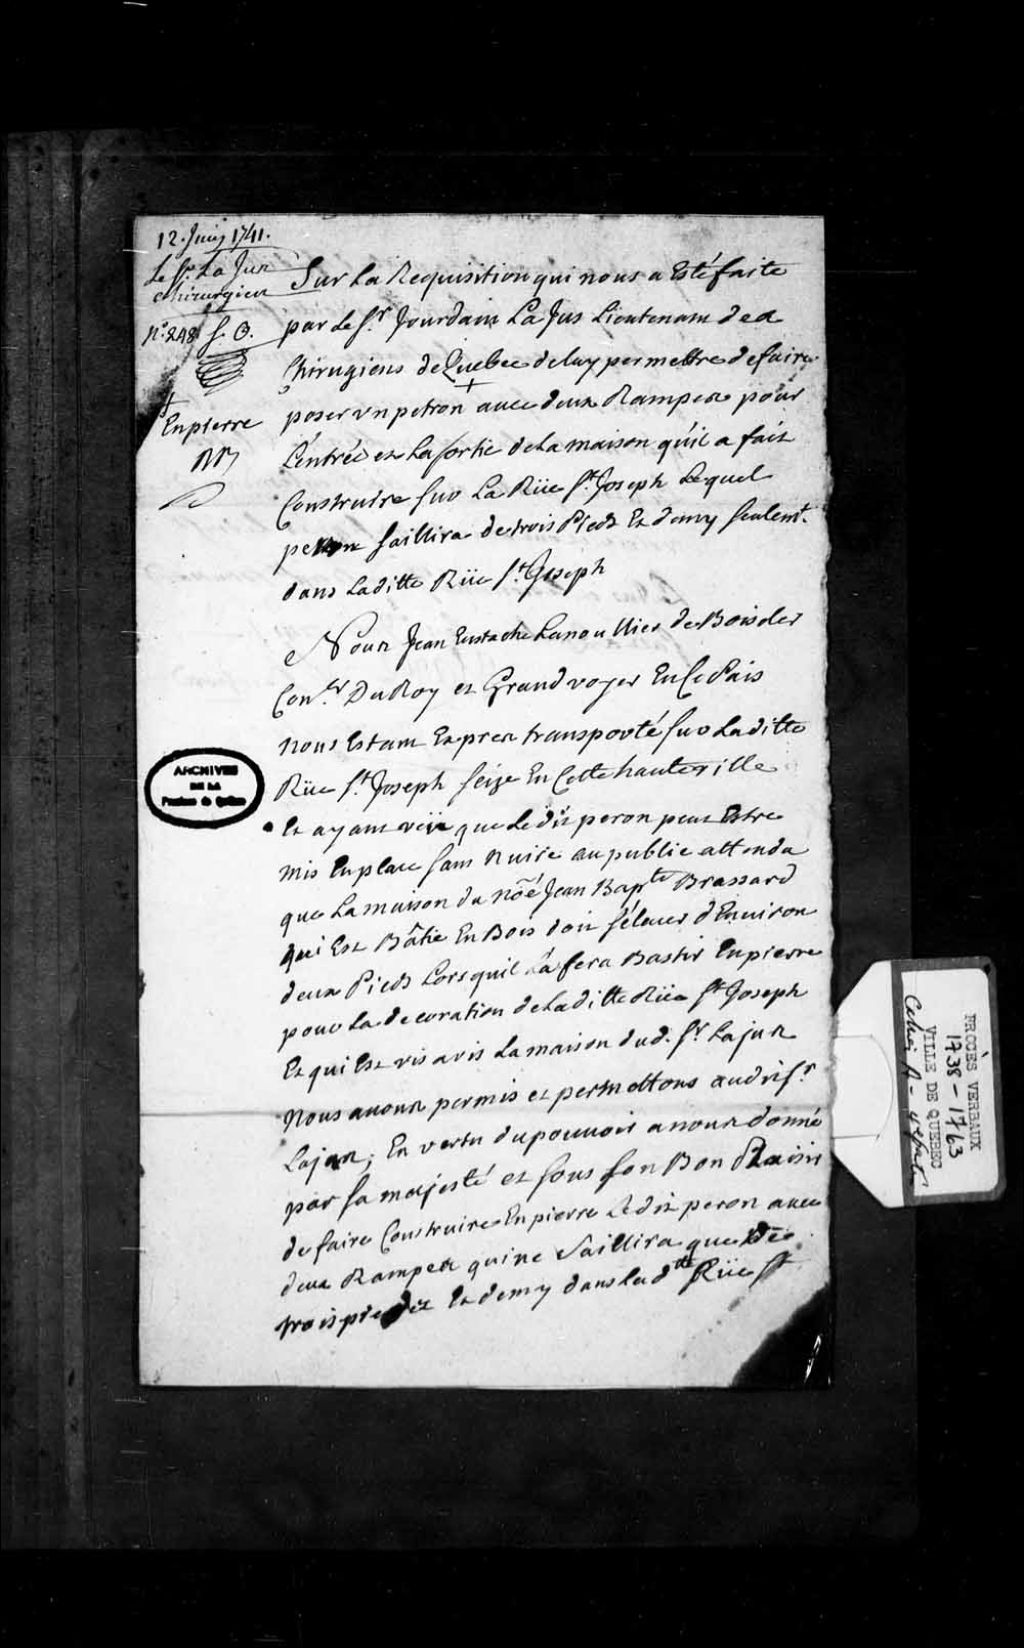 12. Juin 1741.
Le Sr. La Jus
chirurgien
No. 248
Sur La Requisition qui nous a Esté faite
par Le Sr. Jourdain La Jus Lieutenant des
Chirugiens de Quebec de luy permettre de faire
poser un petron + avec deux Rampes pour
+
En pierre
L'entrée et La sortie de La maison qu'il a fait
Construire sur La Rüe St. Joseph Lequel
saillira de trois Pieds Et demy seulemt.
dans Laditte Rüe St. Joseph
Nous Jean Eustache Lanoullier de Boisclerc
Conser. Du Roy et Grand voyer En Ce Païs
nous Estant Expres transporté sur Laditte
Rüe St. Joseph seize En Cette hauteville
Et ayant veüe que Ledit peron peut Estre
mis En place sans nuire au public attendu
que La maison du nõé Jean Bapte. Brassard
qui Est Bâtie En Bois doit d'Environ
deux Pieds Lors quil La fera Bastir En pierre
pour La decoration de Laditte Rüe St. Joseph
Et qui Est vis avis La maison dud. Sr. Lajus
Nous avons permis et permettons audit Sr.
Lajus, En vertu du pouvoir a nous donné
par sa majesté et sous son Bon Plaisir
de faire Construire En pierre Ledit peron avec
deux Rampes qui ne Saillira que De
trois pieds Et demy dans lad.tte Rüe St.
ARCHIVES
DE LA
Province de Québec
PROCÈS VERBAUX
1738 - 1763
VILLE DE QUEBEC